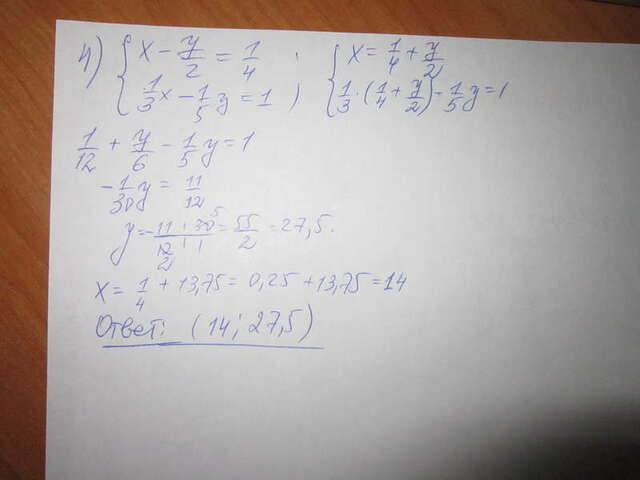 4) { x - y/2 = 1/4 ; { x = 1/4 + y/2
{ 1/3 x - 1/5 y = 1 ) { 1/3 · (1/4 + y/2) - 1/5 y = 1
1/12 + y/6 - 1/5 y = 1
- 1/30 y = 11/12
y = - 11 · 30 5 / 12 2 · 1 = 55/2 = 27,5.
x = 1/4 + 13,75 = 0,25 + 13,75 = 14
Ответ: (14; 27,5)